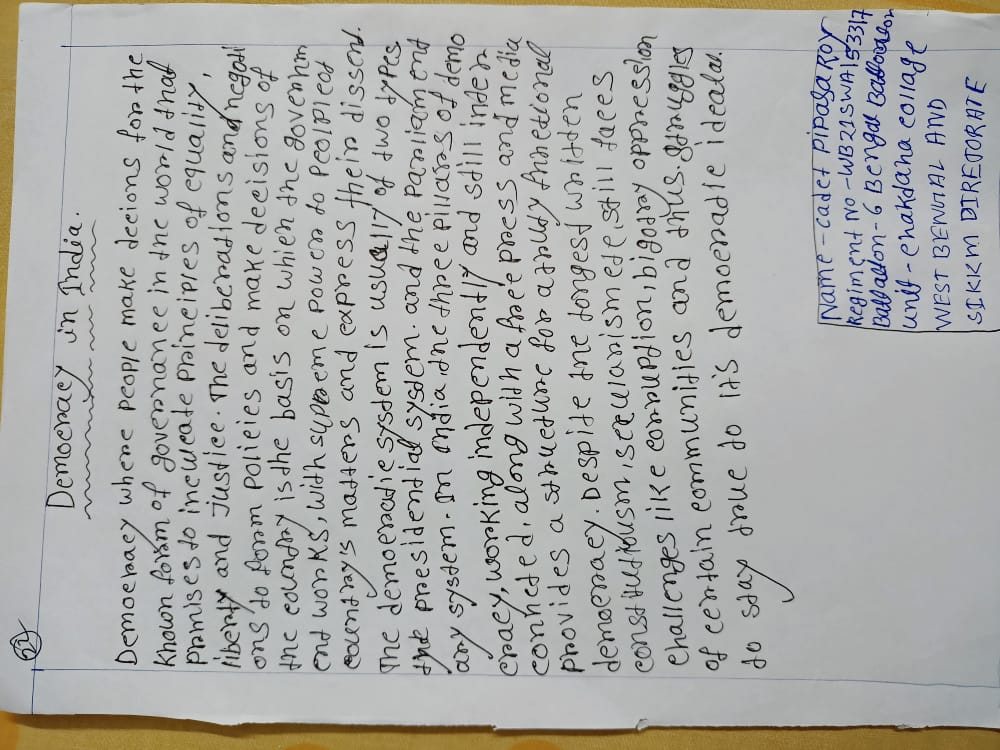 27
Democracy in India.
Democracy where people make decions for the
known form of governance in the world that
prmises to inculcate principles of equality,
liberty and justice. The deliberations and negoti
ons to form policies and make decisions of
the country is the basis on which the governm
ent works, with supreme power to peolpleof
country's matters and express their dissent.
The democratic system is usually of two types
the presidential system. and the Parliam ent
ary system. In India the three pillars of demo
cracy, working independently and still inter
conneted, along with a free press and media
provides a structure for a truly functional
democracy. Despite the longest written
constitution, secularism etc, still faces
challenges like corruption, bigotry oppression
of certain communities and thus. struggles
to stay true to it's democratic ideals.
Name - cadet PIPASA ROY
Regiment No - WB21SWA153317
Battalion - 6 Bengal Battalion
unit - chakdaha collage
WEST BENGAL AND
SIKKM DIRETORATE